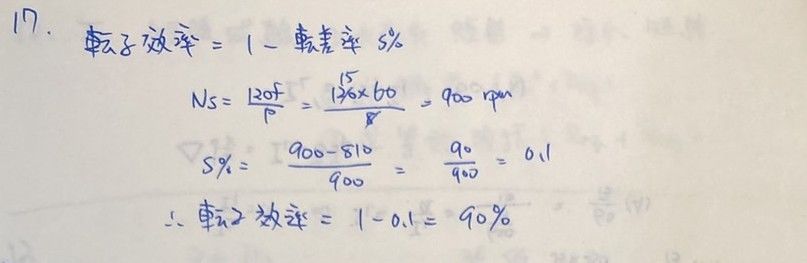 17. 轉子效率 = 1 - 轉差率 S%
Ns = 120f/P = 120×60/8 = 900 rpm
15
S% = 900-810/900 = 90/900 = 0.1
∴ 轉子效率 = 1-0.1 = 90%